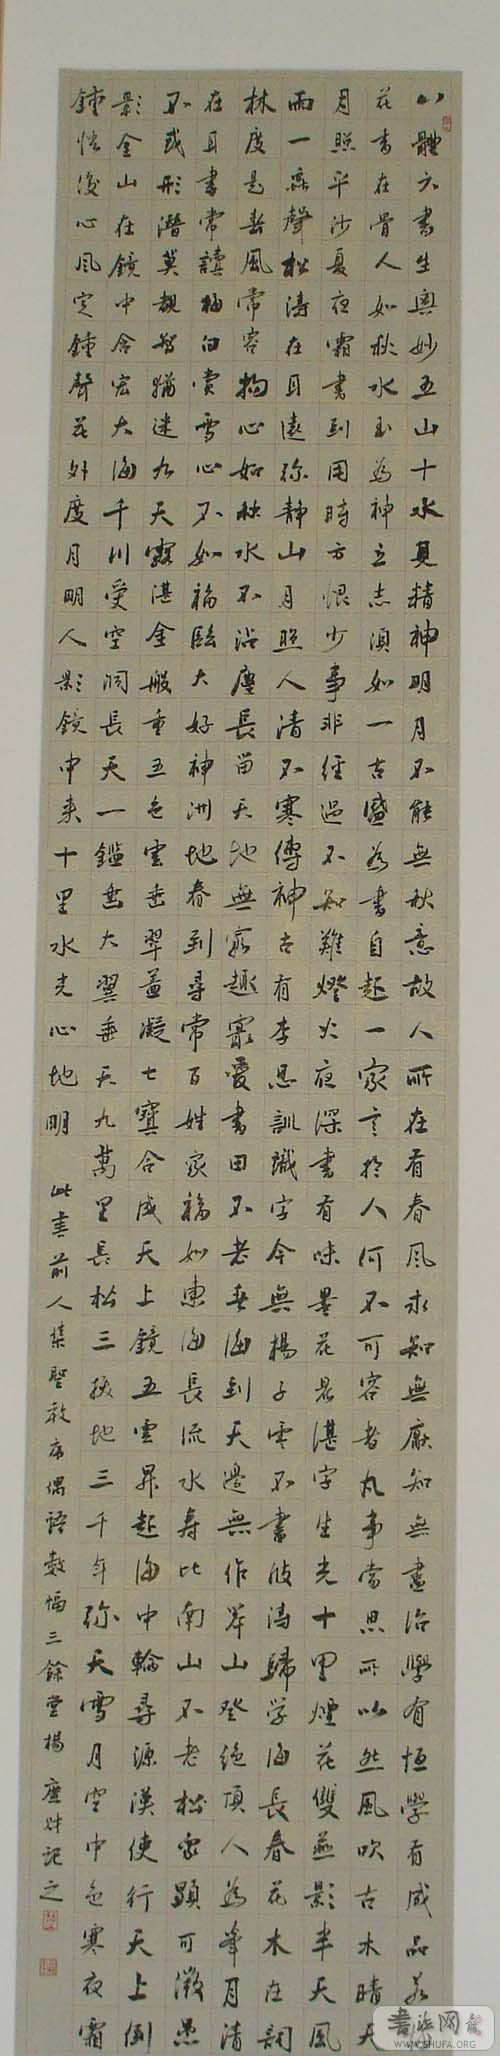 八體六書生奧妙五山十水見精神明月不能無秋意故人所在有春風求知無厭知無盡治學有恒學有成品若梅
花香在骨人如秋水玉為神立志須如一古盛為書自起一家言於人何不可容者凡事當思所以然風吹古木晴天
月照平沙夏夜霜書到用時方恨少事非經過不知難燈火夜深書有味墨花晨湛字生光十里煙花雙燕影半天風
雨一聲松濤在耳遠彌靜山月照人清不寒傳神古有李思訓識字今無楊子雲不書波濤歸學海長春花木在詞
林度是春風常容物心如秋水不沾塵長留天地無窮趣最愛書田不老春海到天邊無作岸山登絕頂人為峯月清
在耳書常讀袖白賞雪心不如福臨大好神洲地春到尋常百姓家福如東海長流水壽比南山不老松顯可徵是
不或形潛莫覩智猶迷九天露湛金般重五色雲垂翠蓋凝七寶合成天上鏡五雲昇起海中輪尋源漢使行天上倒
影金山在鏡中含宏大海千川受空洞長天一鑑垂大翼垂天九萬里長松三拔地三千年彌天雪月空中色寒夜霜
鐘悟後心風定鐘聲花外度月明人影鏡中來十里水光心地明
此書前人集聖教序偶語數幅三餘堂楊 記之
書法网
WWW.SHUFA.ORG